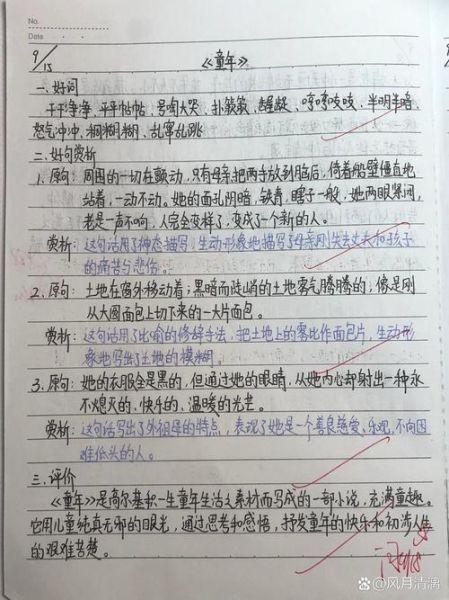 No.
Date
9/15
《童年》
一、好词
干干净净、平平帖帖、号啕大哭、扑簌簌、龌龊、哼哼唧唧、半明半暗、
怒气冲冲、糊糊、乱窜乱跳
二、好句赏析
1. 原句：周围的一切在颤动，只有母亲把两手放到脑后，倚着船壁僵直地
站着，一动不动。她的面孔阴暗，铁青，瞎子一般，她两眼紧闭，
老是一声不响，人完全变样了，变成了一个新的人。
赏析：这句话用了神态描写，生动形象地描写了母亲刚失去丈夫和孩子
的痛苦与悲伤。
2. 原句：土地在窗外移动着；黑暗而陡峭的土地雾气腾腾的；像是刚
从大圆面包上切下来的一大片面包。
赏析：这句话用了比喻的修辞手法，把土地上的雾比作面包片，生动形
象地写出了土地的模糊。
3. 原句：她的衣服全是黑的，但通过她的眼睛，从她内心却射出一种永
不熄灭的、快乐的、温暖的光芒。
赏析：这句话写出了外祖母的特点，表现了她是一个善良慈爱、乐观、不向困
难低头的人。
三、评价
《童年》是高尔基积一生童年生活之素材而写成的一部小说，充满童趣。
它用儿童纯真无邪的眼光，通过思考和感悟，抒发童年的快乐和初涉人生
的艰难苦楚。
@风月清漓